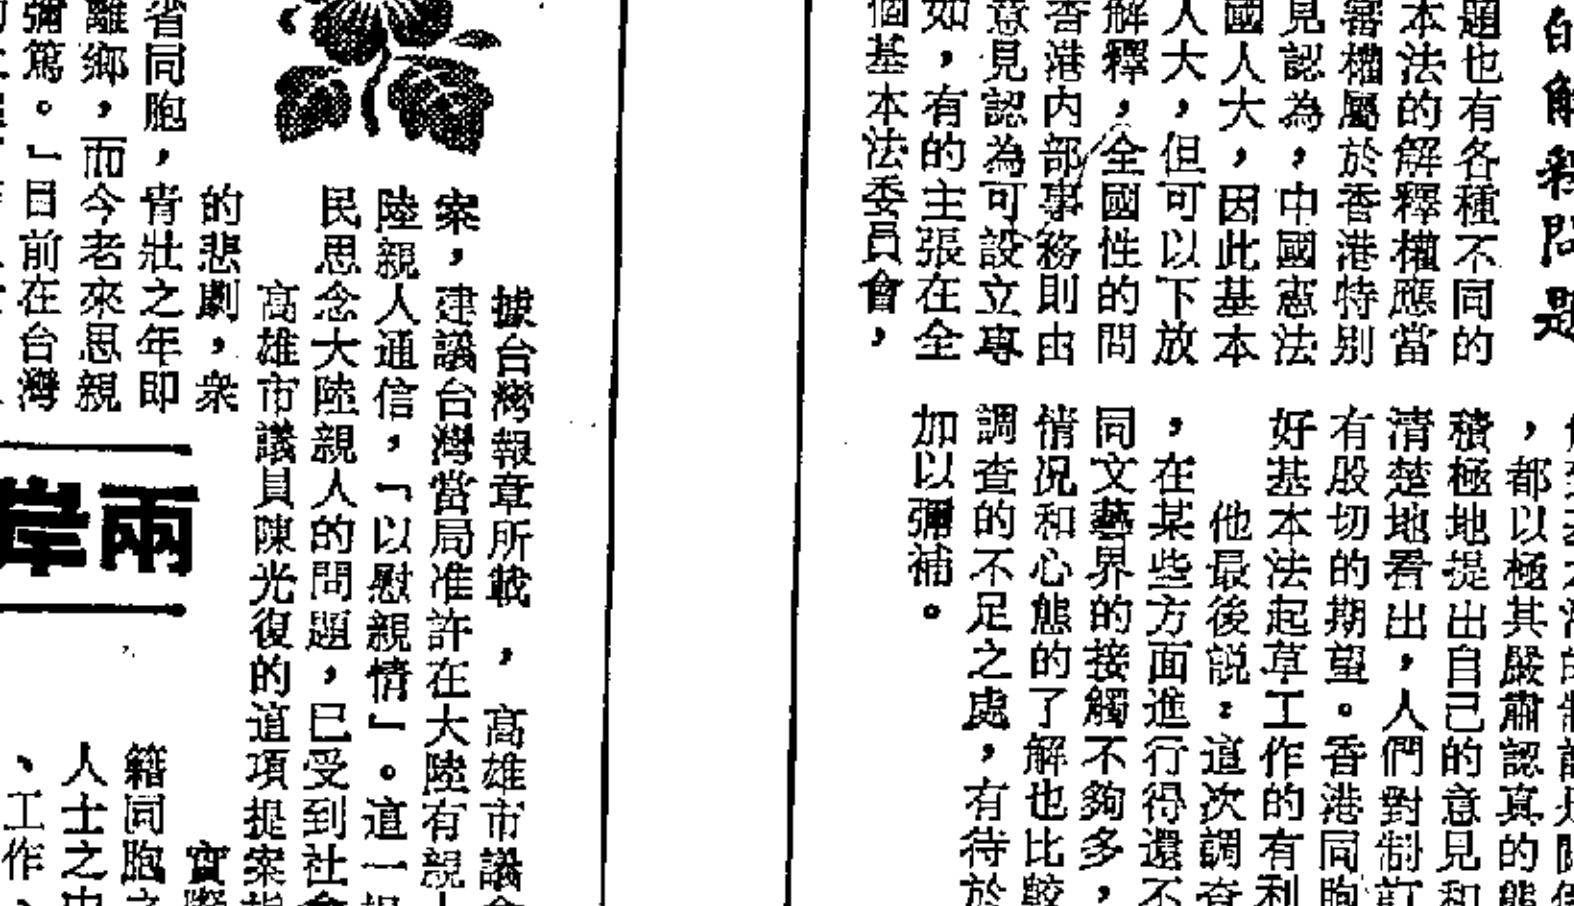 的解釋問題
題也有各種不同的
本法的解釋權應當
審權屬於香港特別
見認為，中國憲法
國人大，因此基本
人大，但可以下放
解釋，全國性的問
香港內部事務則由
意見認為可設立專
如，有的主張在全
個基本法委員會，
，都以極其嚴肅認真的態
積極地提出自己的意見和
清楚地看出，人們對制訂
有殷切的期望。香港同胞
好基本法起草工作的有利
他最後説：這次調查
，在某些方面進行得還不
同文藝界的接觸不夠多，
情况和心態的了解也比較
調查的不足之處，有待於
加以彌補。
據台灣報章所載，高雄市議會
案，建議台灣當局准許在大陸有親人
陸親人通信，「以慰親情」。這一提
民思念大陸親人的問題，已受到社會
高雄市議員陳光復的這項提案指
的悲劇，衆
省同胞，青壯之年即
離鄉，而今老來思親
彌篤。」目前在台灣
兩岸
實際
籍同胞之
人士之中
、工作、